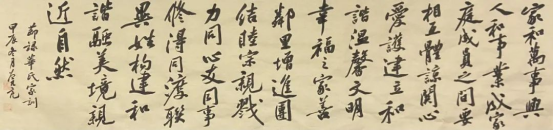 家和萬事興
人和事業成家
庭成員之間要
相互體諒關心
愛護建立和
諧溫馨文明
幸福之家善
鄰里增進團
結睦宗親戮
力同心友同事
修得同渡聯
異姓构建和
諧融美境親
近自然
節録華氏家訓
甲辰冬月